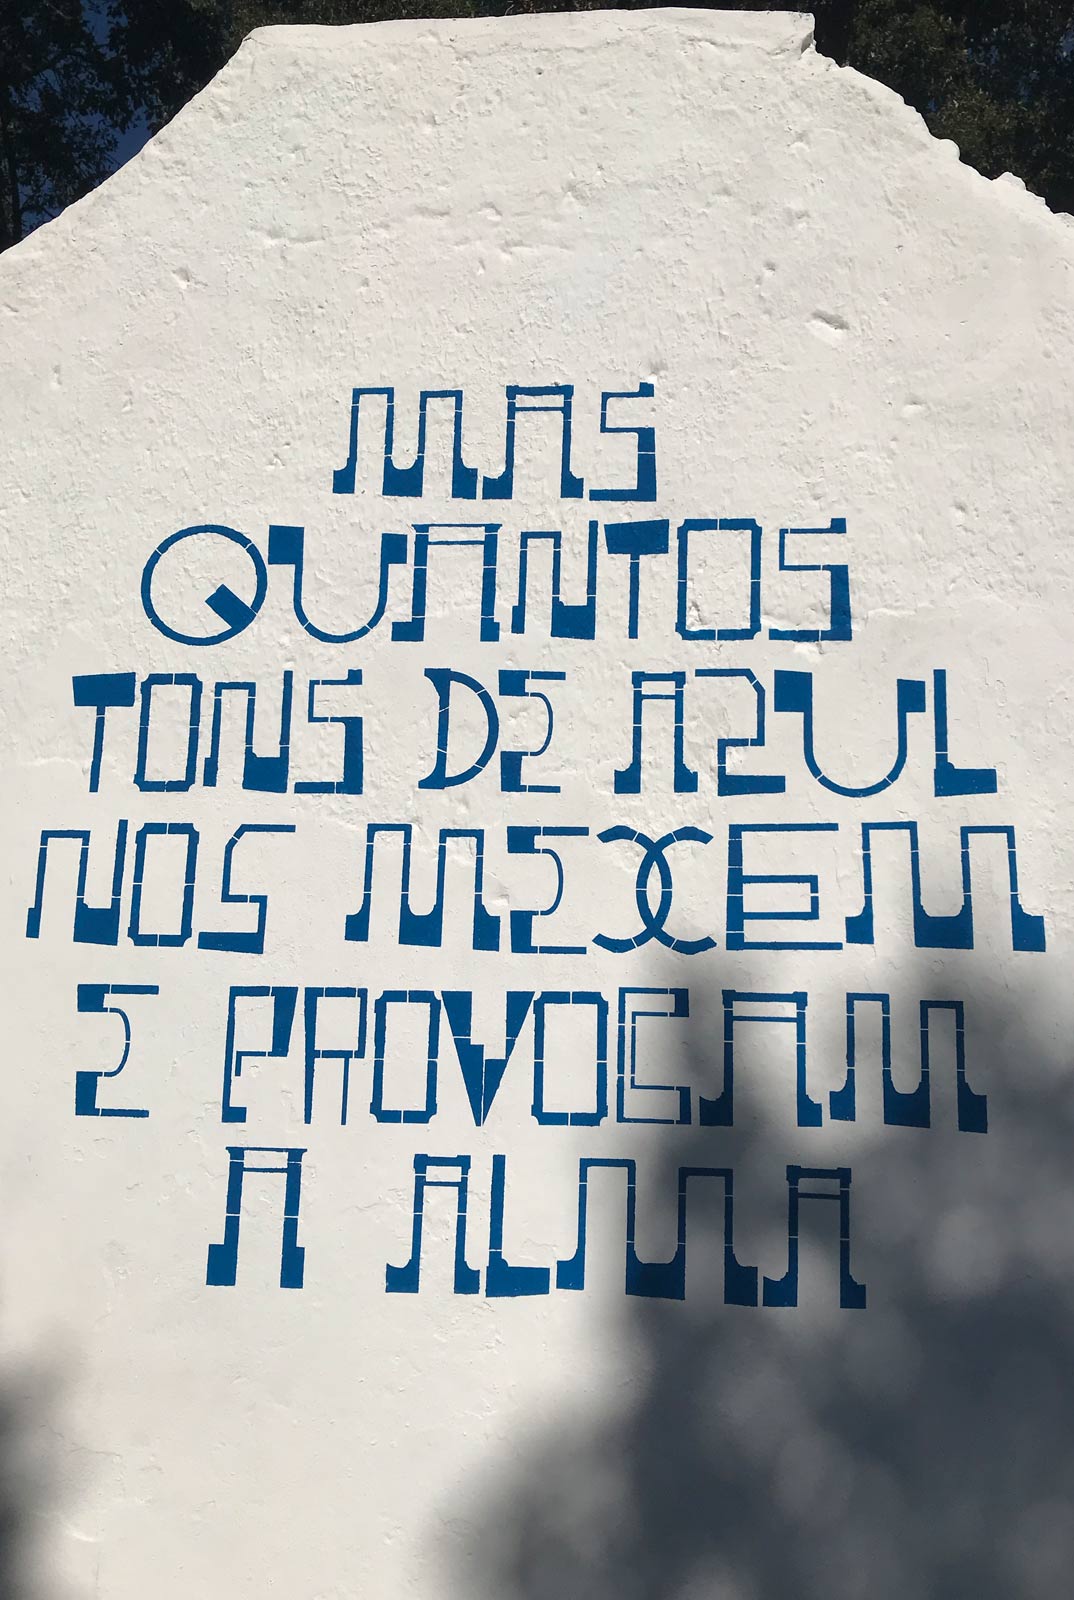 MAS
QUANTOS
TONS DE AZUL
NOS MEXEM
E PROVOCAM
A ALMA